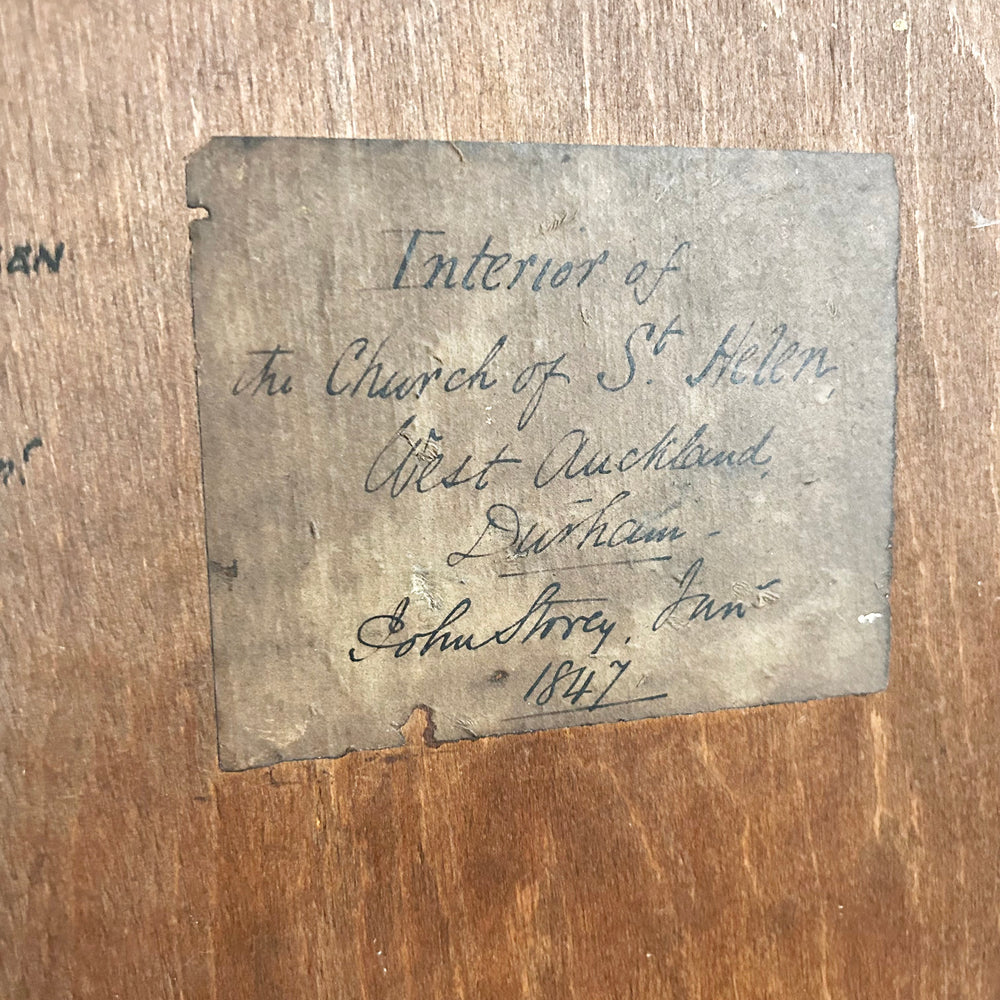 Interior of
the Church of St. Helen
West Auckland,
Durham -
John Storey, Jany
1847